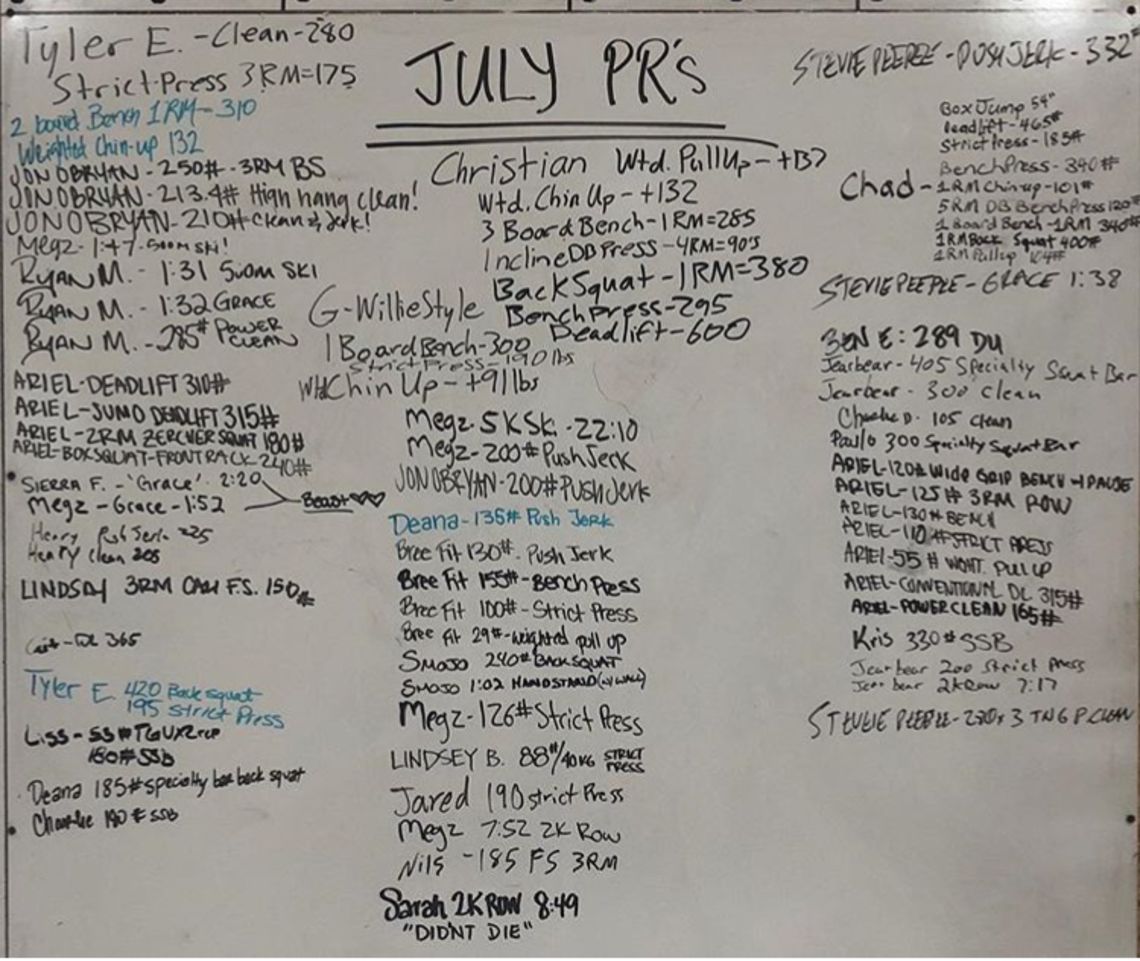 JULY PR's
Tyler E. - Clean - 280
Strict-Press 3RM=175
2 board Bench 1RM - 310
Weighted Chin-up 132
JON OBRYAN - 250# - 3RM BS
JON OBRYAN - 213.4# High hang clean!
JON OBRYAN - 210# Clean & Jerk!
Megz - 1:47 - 500m SKI!
RYAN M. - 1:31 500m SKI
RYAN M. - 1:32 GRACE
RYAN M. - 285# POWER CLEAN
ARIEL-DEADLIFT 310#
ARIEL-SUMO DEADLIFT 315#
ARIEL-2RM ZERCHER SQUAT 180#
ARIEL-BOX SQUAT-FRONT RACK 240#
SIERRA F. - 'Grace' 2:20
Megz - Grace - 1:52
Beast ♡♡
Henry Push Jerk 225
Henry Clean 205
LINDSAY 3RM F.S. 150#
DL 365
Tyler E. 420 Back squat
195 Strict Press
Liss - 53# TGU x 2rep
180# SSB
Deana 185# specialty bar back squat
Charlie 190# SSB
Christian Wtd. PullUp - +137
Wtd. Chin Up - +132
3 Board Bench - 1RM=285
Incline DB Press - 4RM=90's
Back Squat - 1RM=380
Bench Press - 295
Deadlift - 600
G-WillieStyle
1 Board Bench - 300
Strict Press - 190 lbs
Wtd Chin Up - +91 lbs
Megz - 5K Ski - 22:10
Megz - 200# Push Jerk
JON OBRYAN - 200# Push Jerk
Deana - 135# Push Jerk
Bree Fit 130# - Push Jerk
Bree Fit 155# - Bench Press
Bree Fit 100# - Strict Press
Bree Fit 29# - weighted pull up
SMOJO 240# BACK SQUAT
SMOJO 1:02 HANDSTAND (W/ WALL)
Megz - 126# Strict Press
LINDSEY B. 88#/40KG STRICT PRESS
Jared 190 strict Press
Megz 7:52 2K Row
Nils - 185 FS 3RM
Sarah 2K ROW 8:49
"DIDN'T DIE"
STEVIE PEEPEE - PUSH JERK - 332#
Chad -
Box Jump 54"
Deadlift - 465#
Strict Press - 185#
Bench Press - 340#
1RM Chin up - 101#
5RM DB Bench Press 120#
1 Board Bench - 1RM 340#
1RM Back Squat 400#
1RM Pullup 104#
STEVIE PEEPLE - GRACE 1:38
BEN E: 289 DU
Jearbear - 405 Specialty Squat Bar
Jearbear - 300 Clean
Charlie D. 105 clean
Paulo 300 Specialty Squat Bar
ARIEL-120# WIDE GRIP BENCH W/ PAUSE
ARIEL-125# 3RM ROW
ARIEL-130# BENCH
ARIEL-110# STRICT PRESS
ARIEL-55# WGHT. PULL UP
ARIEL-CONVENTIONAL DL 315#
ARIEL-POWER CLEAN 165#
Kris 330# SSB
Jearbear 200 Strict Press
Jearbear 2K Row 7:17
STEVIE PEEPLE - 220 x 3 TNG P. CLEAN